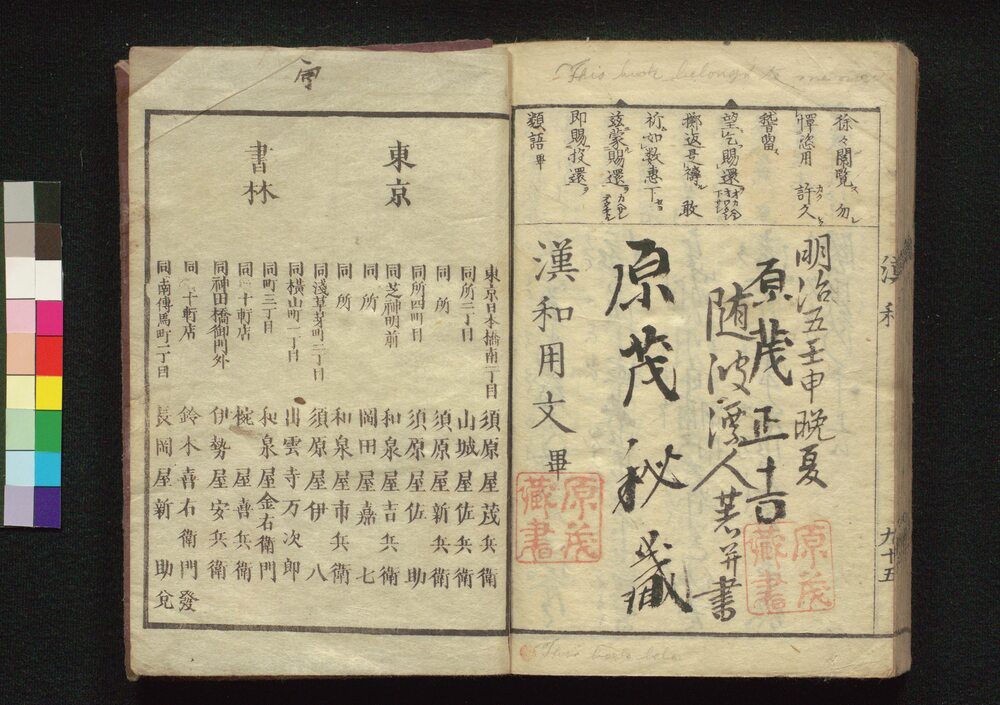 This book belongs to
徐々閲覧 勿
憚恣用 許久
稽留
望乞賜還
擲返是禱 敢
祈如数恵下
茲蒙賜還
即賜投還
類語畢
漢和
九十五
明治五壬申晩夏
随波漂人著并書
原茂正吉
原茂秘蔵
漢和用文 畢
原茂蔵書
原茂蔵書
This book belo
東京
書林
東京日本橋南一丁目 須原屋茂兵衛
同所二丁目 山城屋佐兵衛
同所 須原屋新兵衛
同所四丁目 須原屋佐助
同芝神明前 和泉屋吉兵衛
同所 岡田屋嘉七
同所 和泉屋市兵衛
同淺草茅町二丁目 須原屋伊八
同橫山町一丁目 出雲寺万次郎
同町三丁目 和泉屋金右衛門
同十軒店 椀屋喜兵衛
同神田橋御門外 伊勢屋安兵衛
同十軒店 鈴木喜右衛門
同南傳馬町一丁目 長岡屋新助
發兌